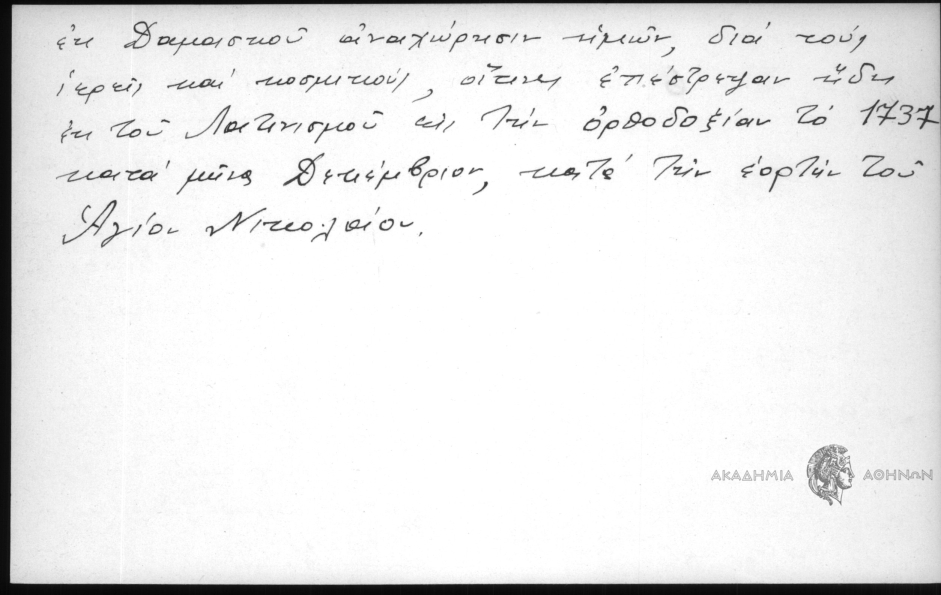 ἐκ Δαμασκοῦ ἀναχώρησιν ἡμῶν, διά τούς
ἱερεῖς καί κοσμικούς, οἵτινες ἐπέστρεψαν ἤδη
ἐκ τοῦ Λατινισμοῦ εἰς τήν ὀρθοδοξίαν τό 1737
κατά μῆνα Δεκέμβριον, κατά τήν ἑορτήν τοῦ
Ἁγίου Νικολάου.
ΑΚΑΔΗΜΙΑ ΑΘΗΝΩΝ